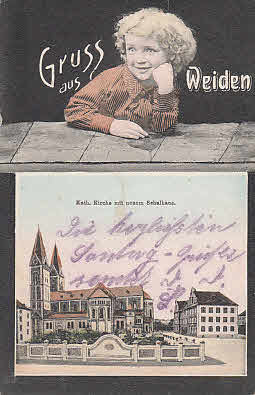 Gruss
aus
Weiden
Kath. Kirche mit neuem Schulhaus.
Die herzlichsten
Sonntag-Grüße